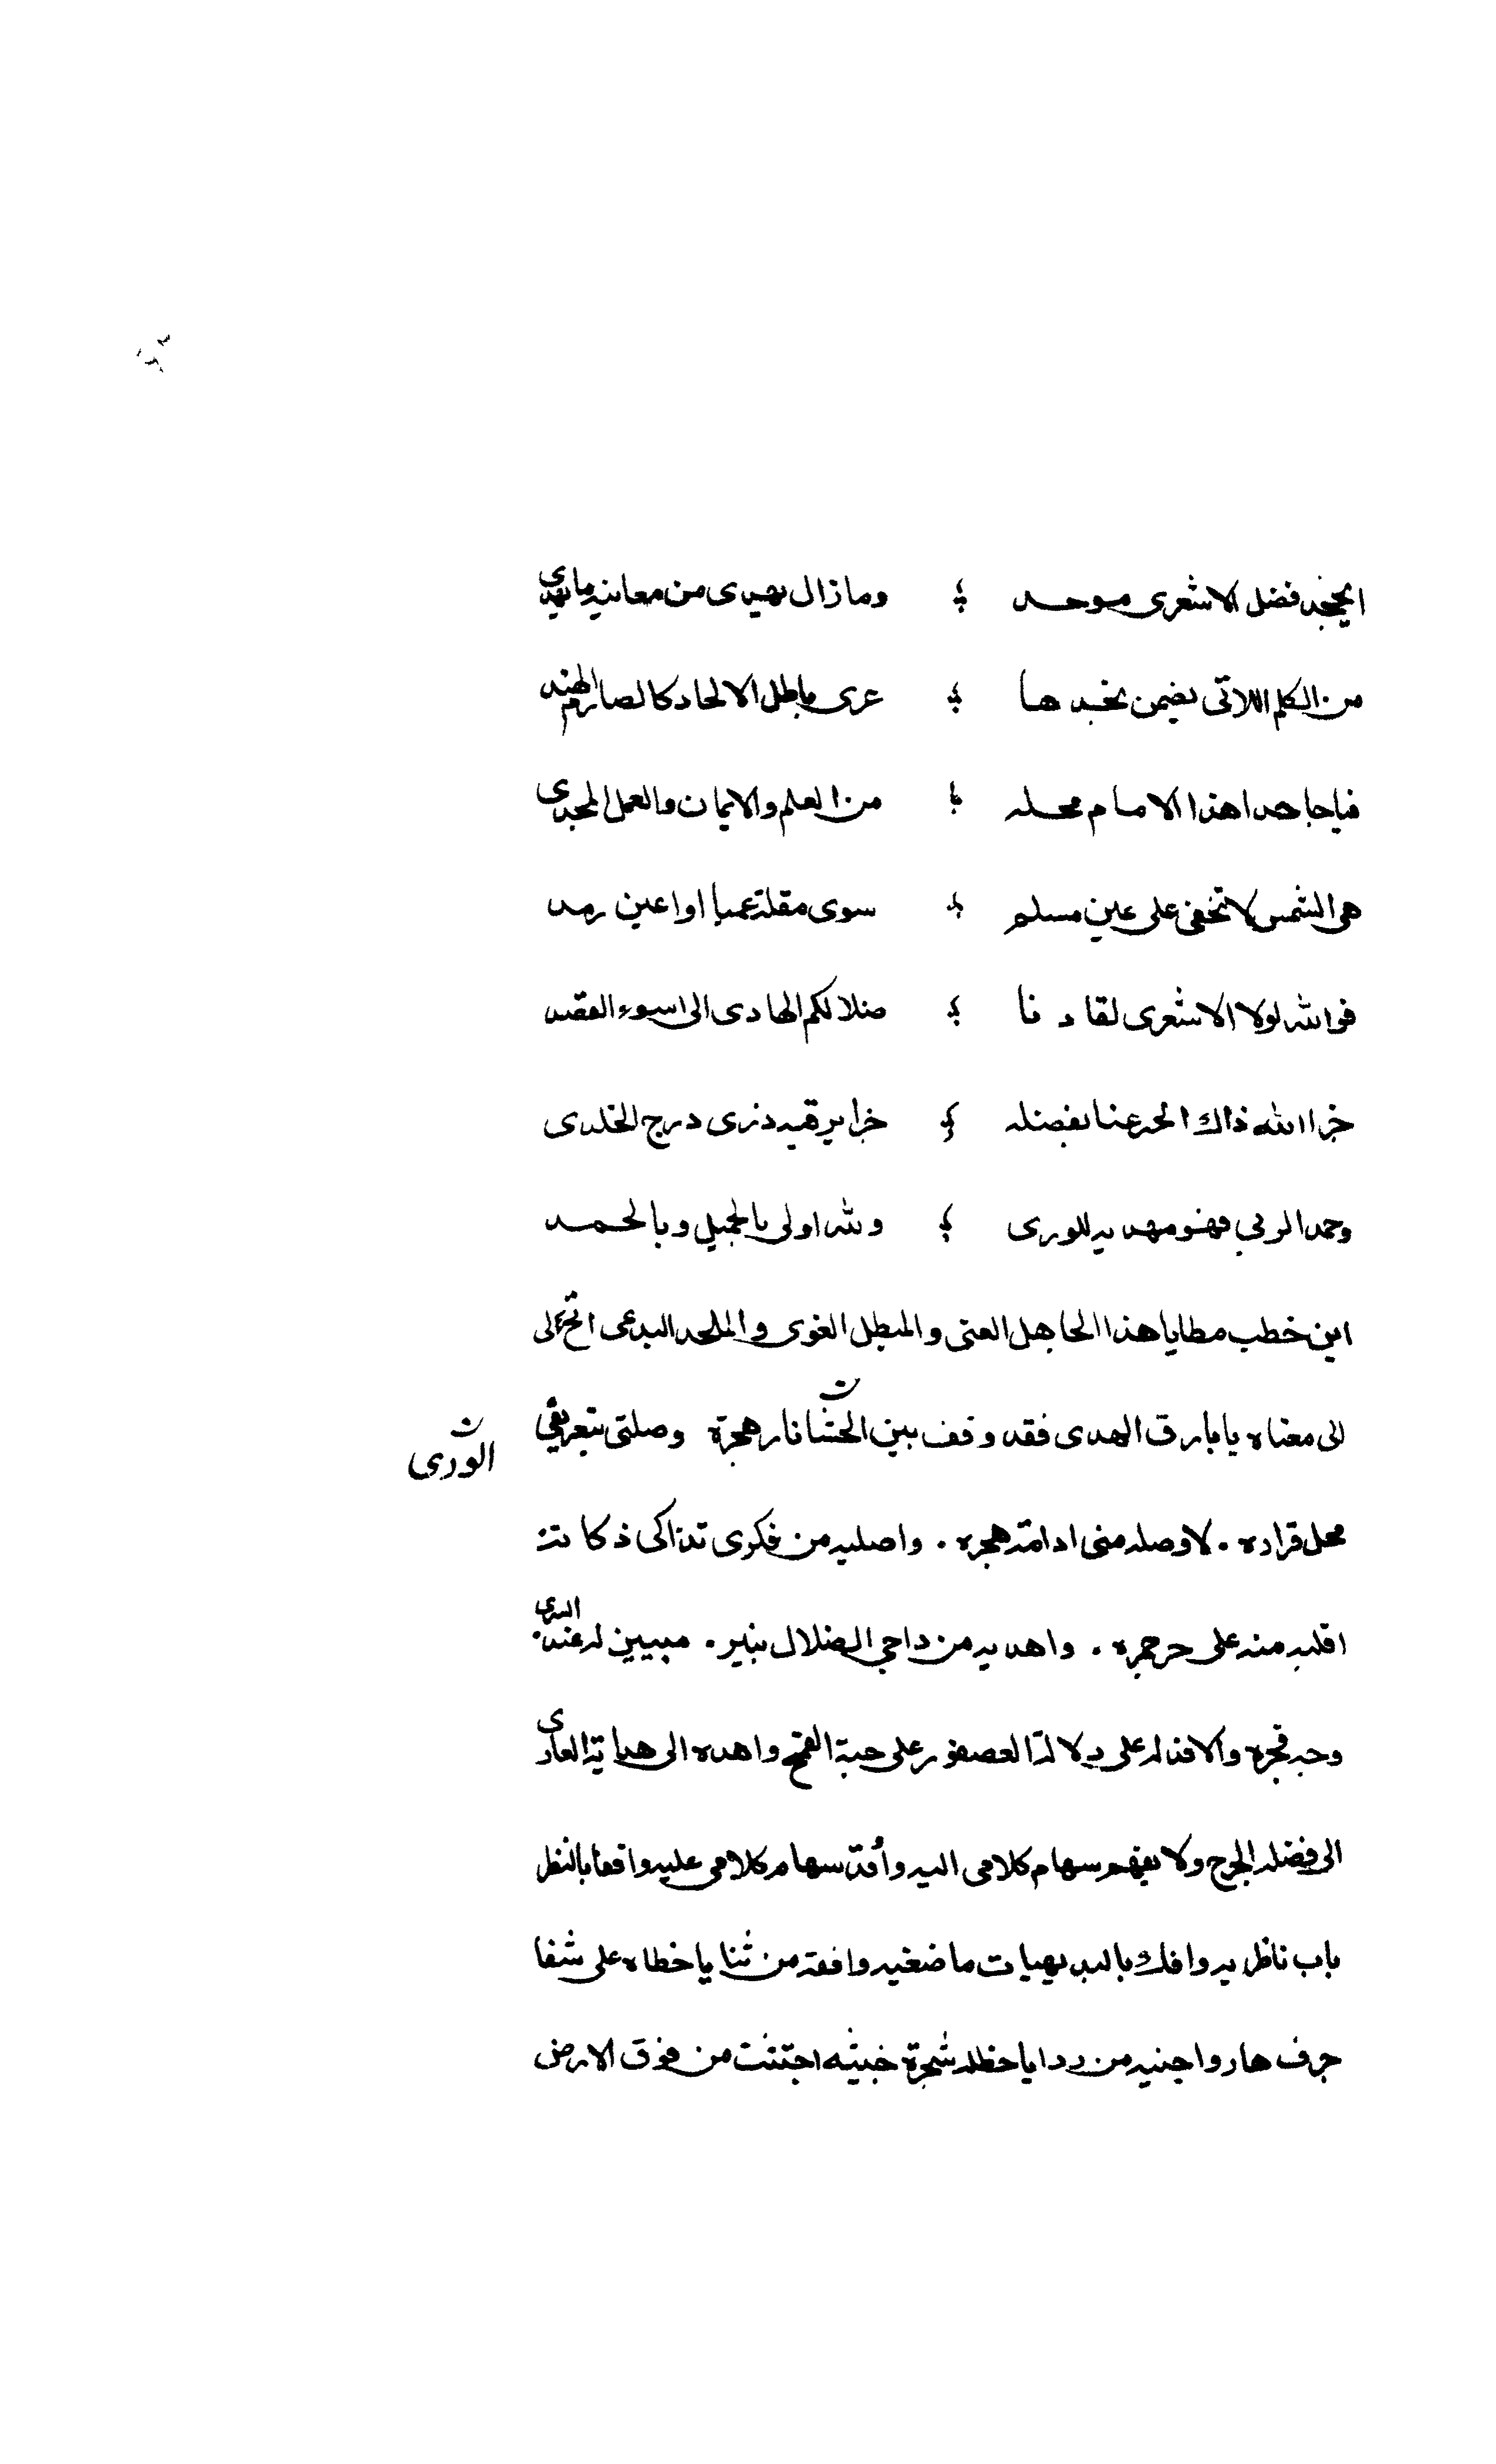 ايجحد فضل الاشعرى موحد وما زال يهدى من معانيه ما يهدي
من الكلم اللاتى يضمن بحدها عرى باطل الالحاد كالصارم الهند
فيا جاحدا هذا الامام محله من العلم والايمان والعمل المجدى
هى الشمس لا تخفى على عين مسلم سوى مقلة عميا او اعين رمد
فوالله لولا الاشعرى لقادنا ضلالكم الهادى الى اسوء القصد
جزا الله ذاك الحبر عنا بفضله جزا يرقيه ذرى درج الخلدى
وحمدا لربي فهو مهديه للورى ولله اولى بالجميل وبالحمد
اين خطب مطايا هذا الجاهل الغبى والمبطل الغوى والملحد البدعى الى
الى معناه يا بارق الهدى فقد وقف بين الحشا نار هجرة وصلتى بتعريفي
الورى
محل قراره . لا وصله منى ادامة هجره . واصليه من فكرى تذاكى ذكا
اقلبه منه على حر جمره . واهديه من داجي الضلال بنير . مبيين له عند السرى
وجه فجره والا فدله على دلالة العصفور على حبة القمح واهده الى هداية العادى
الى فضله الجرح ولا سهام كلامى اليه سهام كلامى عليه واقفا بالنظر
باب ناظريه وافك بالبديهيات ماضغيه من ثنايا خطاه على شفا
جرف هار واجنيه من حنظله شجرة خبيثه اجتثت من فوق الارض